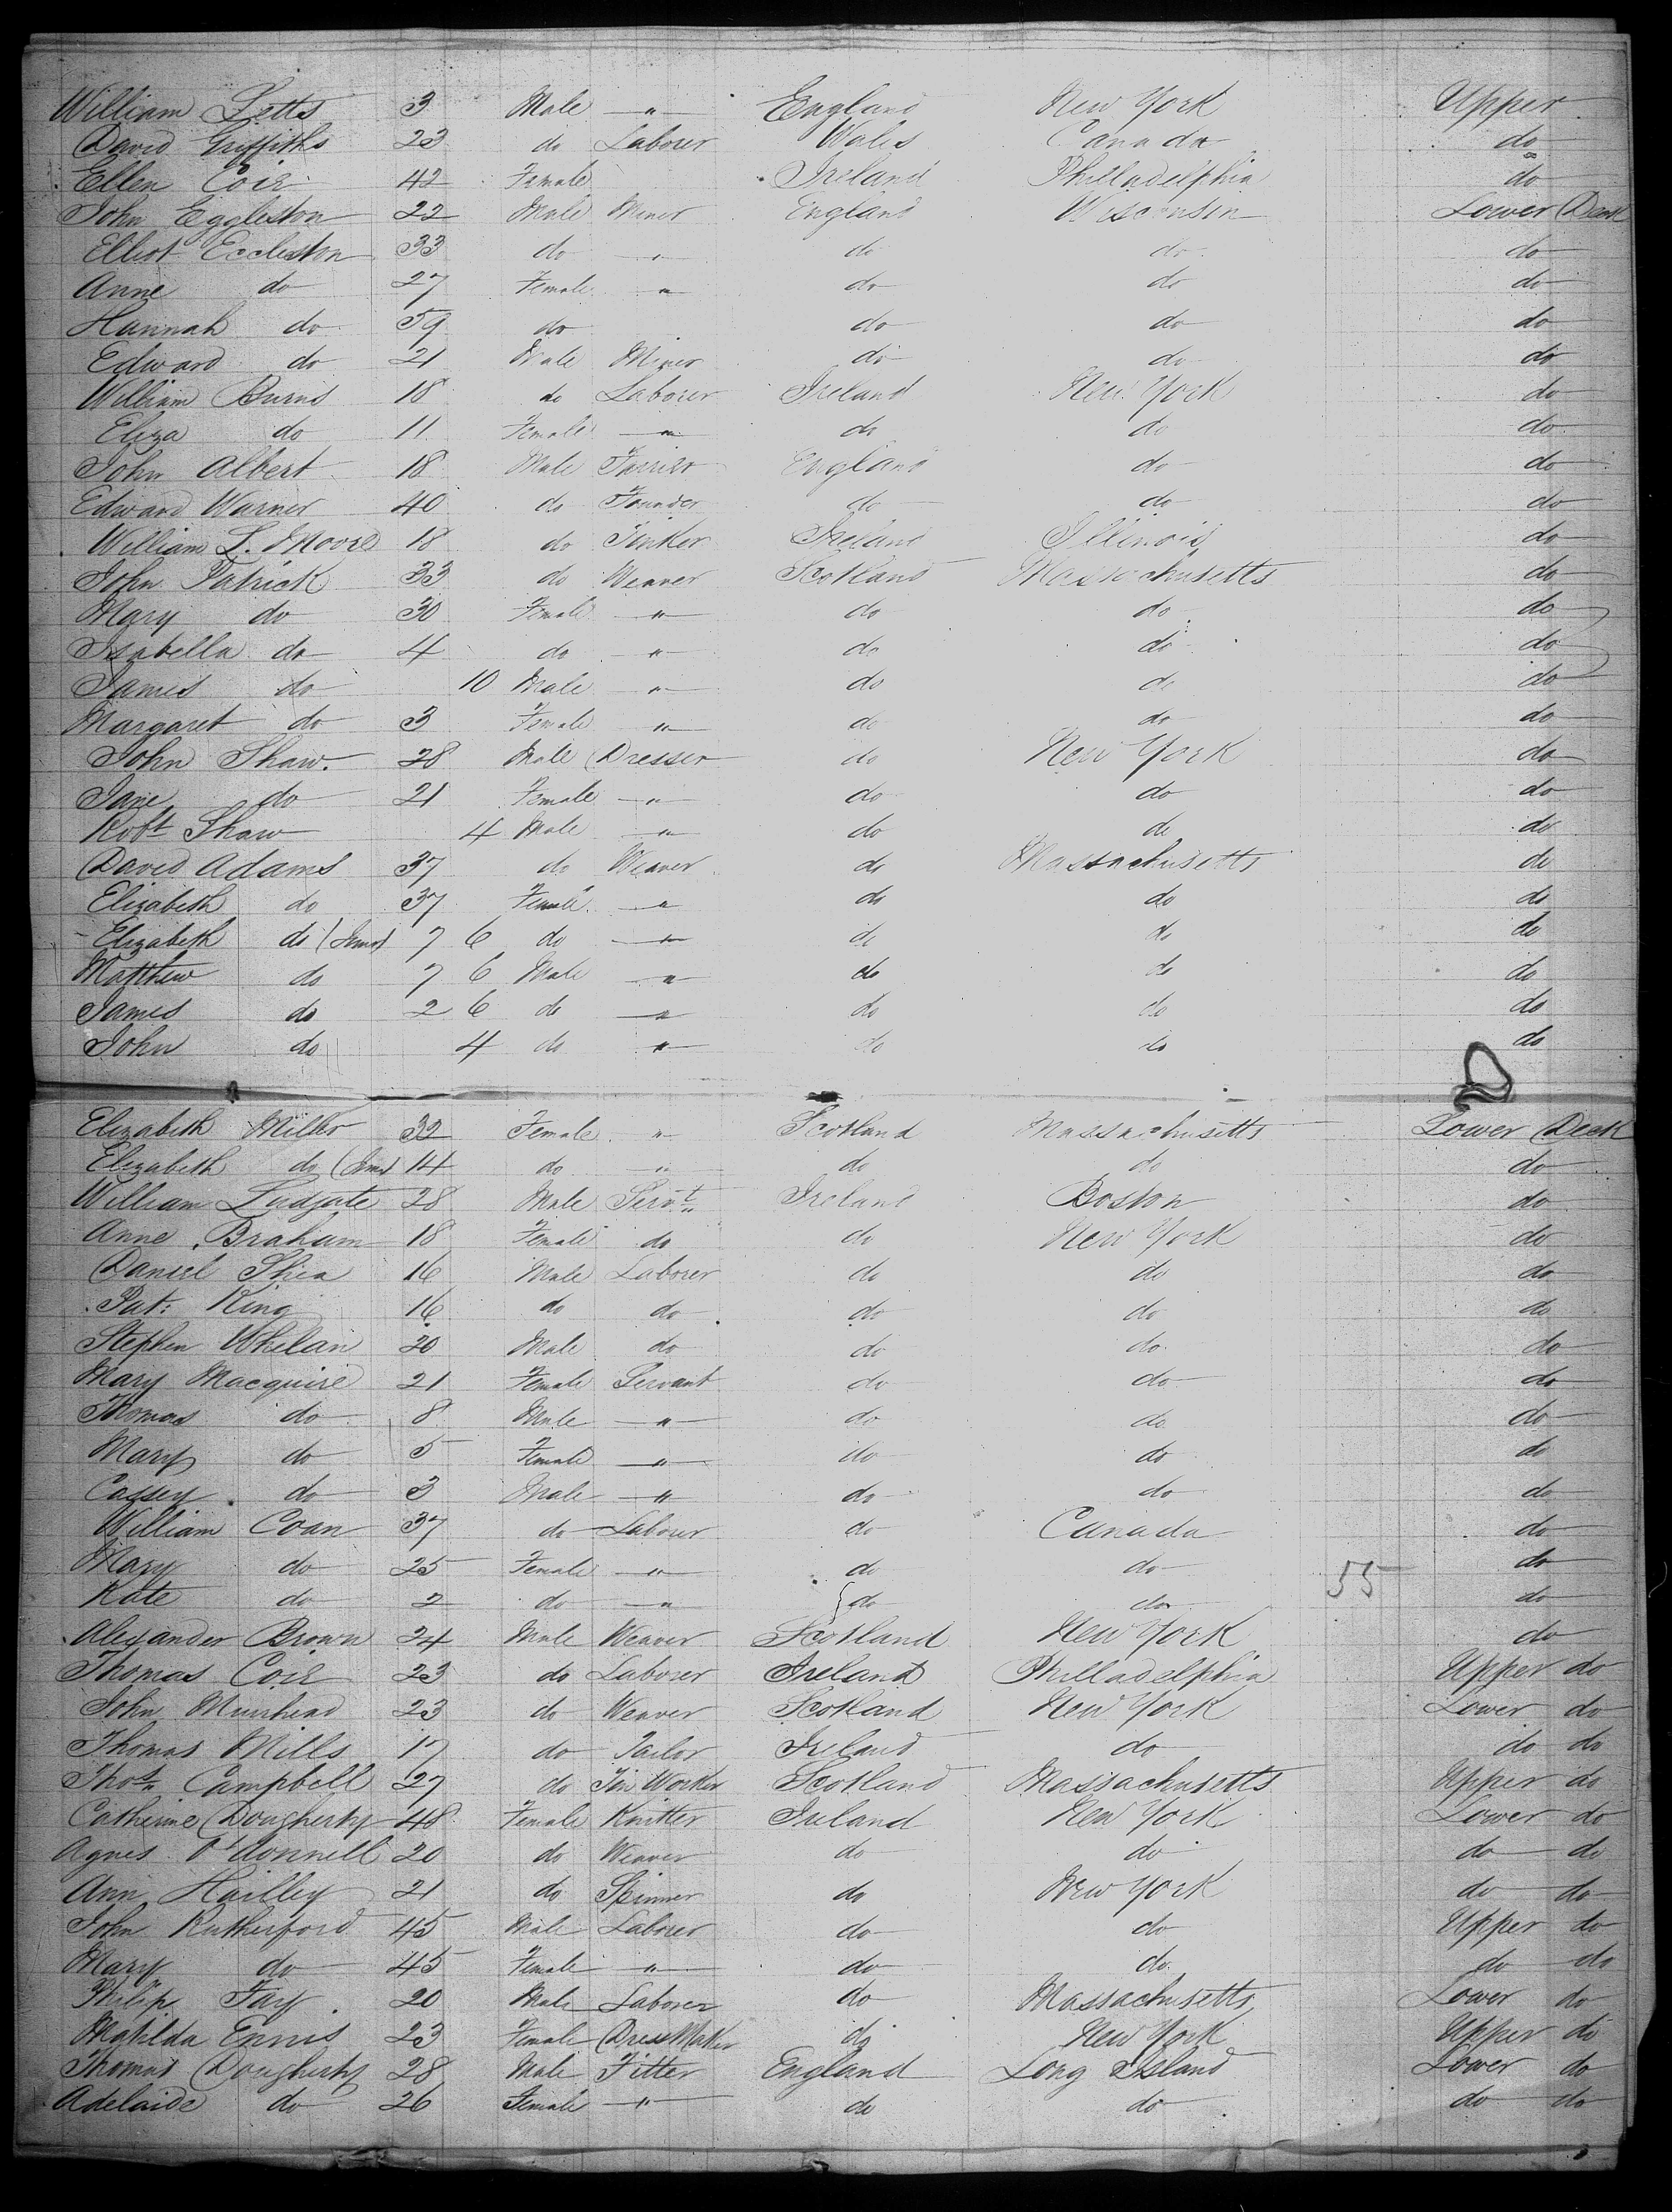 William Letts 3 Male " England New York Upper
David Griffiths 23 do Laborer Wales Canada do
Ellen Coir 42 Female Ireland Philladelphia do
John Eggleston 22 Male Miner England Wisconsin Lower Deck
Elliot Eccleston 33 do " do do do
Anne do 27 Female " do do do
Hannah do 59 do do do do
Edward do 21 Male Miner do do do
William Burns 18 do Laborer Ireland New York do
Eliza do 11 Female " do do do
John Albert 18 Male England do do
Edward Warner 40 do Founder do do do
William L. Moore 18 do Tinker Ireland Illinois do
John Patrick 33 do Weaver Scotland Massachusetts do
Mary do 30 Female " do do do
Isabella do 4 do " do do do
James do 10 Male " do do do
Margaret do 3 Female " do do do
John Shaw. 28 Male Dresser do New York do
Jane do 21 Female " do do do
Robt Shaw 4 Male " do do do
David Adams 37 do Weaver do Massachusetts do
Elizabeth do 37 Female " do do do
Elizabeth do 7 6 do " do do do
Matthew do 7 6 Male " do do do
James do 2 6 do " do do do
John do 4 do " do do do
Elizabeth Miller 32 Female " Scotland Massachusetts Lower Deck
Elizabeth do 14 do " do do do
William Ludgate 28 Male Servt Ireland Boston do
Anne Braham 18 Female do do New York do
Daniel Shea 16 Male Laborer do do do
Pat: King 16 do do do do do
Stephen Whelan 20 Male do do do do
Mary Macquire 21 Female Servant do do do
Thomas do 8 Male " do do do
Mary do 5 Female " do do do
Cassey do 3 Male " do do do
William Coan 37 do Laborer do Canada do
Mary do 25 Female " do do do
Kate do 2 do " do do 55 do
Alexander Brown 24 Male Weaver Scotland New York do
Thomas Coir 23 do Laborer Ireland Philladelphia Upper do
John Muirhead 23 do Weaver Scotland New York Lower do
Thomas Mills 17 do Tailor Ireland do do do
Thos Campbell 27 do Tin Worker Scotland Massachusetts Upper do
Catherine Dougherty 48 Female Knitter Ireland New York Lower do
Agnes O'donnell 20 do Weaver do do do do
Ann Hailley 21 do Spinner do New York do do
John Rutherford 45 Male Laborer do do Upper do
Mary do 45 Female " do do do do
Philip Fay 20 Male Laborer do Massachusetts Lower do
Matilda Ennis 23 Female Dress Maker do New York Upper do
Thomas Dougherty 28 Male Fitter England Long Island Lower do
Adelaide do 26 Female " do do do do